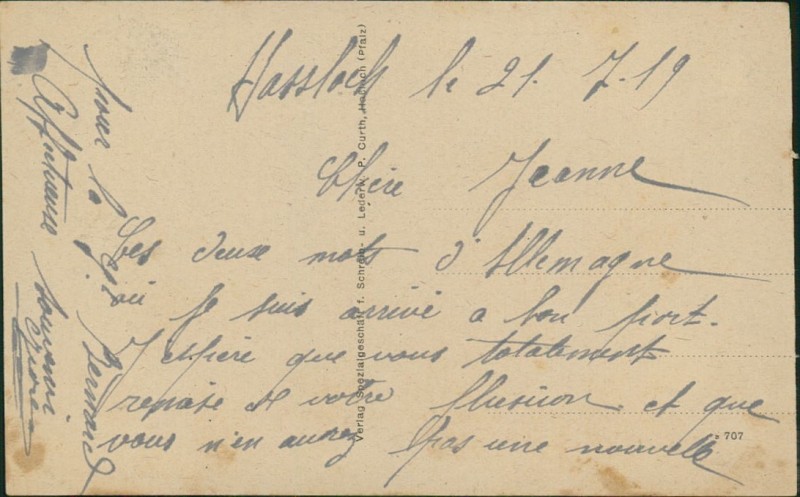 Hassloch le 21. 7-19
Chère Jeanne
Ces deux mots d'Allemagne
où je suis arrivé a bon port.
J espère que vous totalement
remise de votre fluxion et que
vous n'en aurez pas une nouvelle
pour la
Bernard
Verlag Spezialgeschäft f. Schreib- u. Lederw. P. Curth, Hassloch (Pfalz)
707